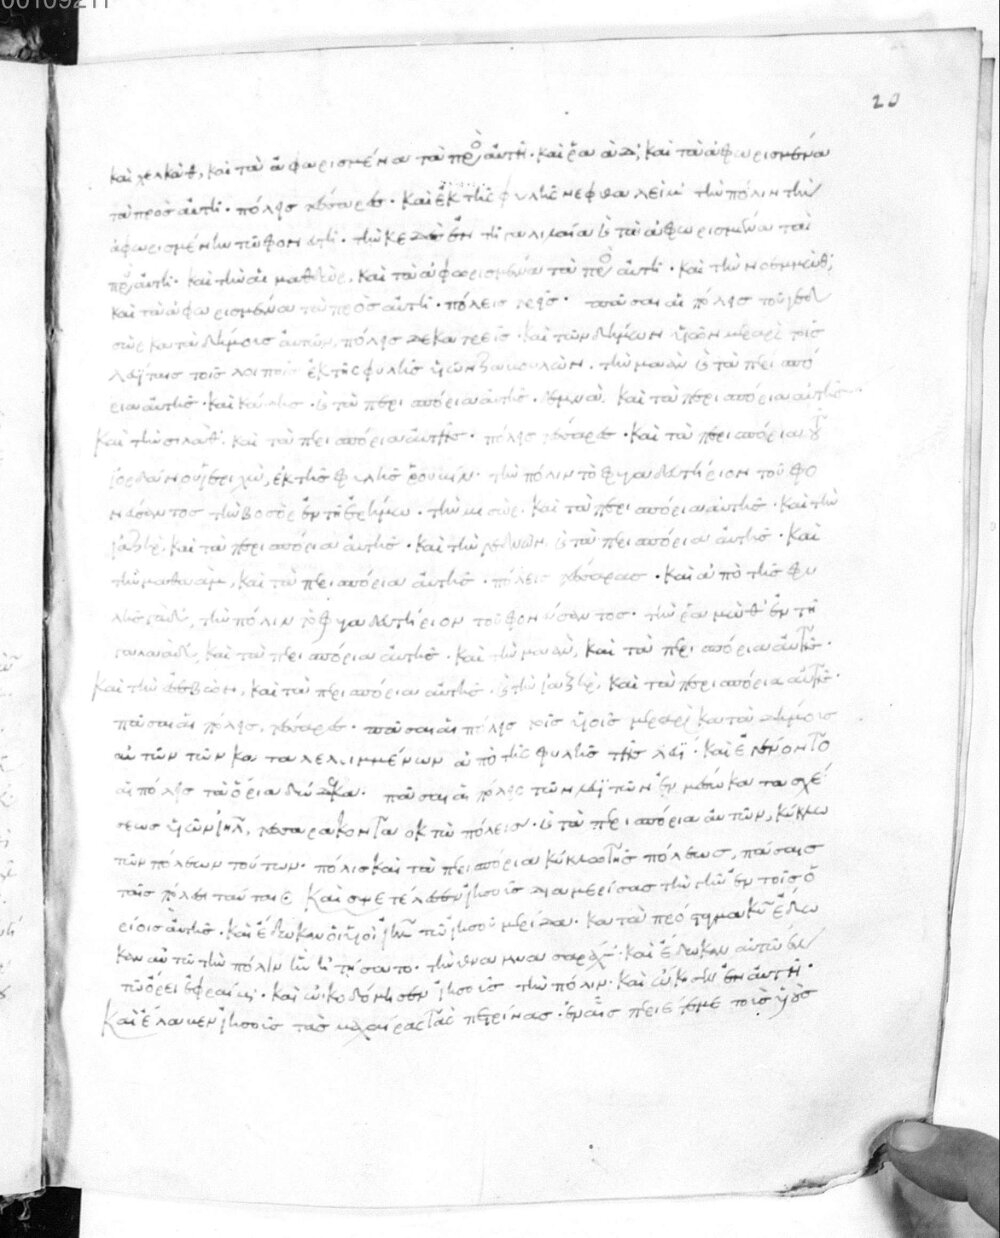 00109211
20
καὶ χελκὰθ, καὶ τὰ ἀφωρισμένα τὰ πρὸ αὐτῇ· καὶ ῥαὰβ; καὶ τὰ ἀφωρισμένα
τὰ πρὸς αὐτῇ· πόλεις τέσσαρες· καὶ ἐκ τῆς φυλῆς νεφθαλεὶμ τὴν πόλιν τὴν
ἀφωρισμένην τῶ φον τῇ· τὴν κέδες ἐν τῇ γαλιλαία καὶ τὰ ἀφωρισμένα τὰ
πρὸ αὐτῇ· καὶ τὴν μαθδὼρ, καὶ τὰ ἀφωρισμένα τὰ πρὸ αὐτῇ· καὶ τὴν
καὶ τὰ ἀφωρισμένα τὰ πρὸς αὐτῇ· πόλεις τρεῖς· πᾶσαι αἱ πόλεις τοῦ γεδ
σὼρ κατὰ δήμοις αὐτῶν, πόλεις δεκατρεῖς· καὶ τῶν δήμων υἱῶν μεραρὶ τοῖς
λευίταις τοῖς λοιποῖς ἐκ τῆς φυλῆς υἱῶν ζαβουλὼν· τὴν μαὰν καὶ τὰ περισπό
ρια αὐτῆς· καὶ κάδης· καὶ τὰ περισπόρια αὐτῆς· δεμνὰ καὶ τὰ περισπόρια αὐτῆς·
καὶ τὴν σελὰθ· καὶ τὰ περισπόρια αὐτῆς· πόλεις τέσσαρες· καὶ τὰ περισπόρια τοῦ
ἰορδάνου ἱεριχὼ, ἐκ τῆς φυλῆς ῥουβὴν· τὴν πόλιν τὸ φυγαδευτήριον τοῦ φο
νεύσαντος τὴν βοσὸρ ἐν τῇ ἐρήμω· τὴν μισὼρ· καὶ τὰ περισπόρια αὐτῆς· καὶ τὴν
ἰαζὴρ, καὶ τὰ περισπόρια αὐτῆς· καὶ τὴν γεδσὼν, καὶ τὰ περισπόρια αὐτῆς· καὶ
τὴν μαφὰ, καὶ τὰ περισπόρια αὐτῆς· πόλεις τέσσαρας· καὶ ἀπὸ τῆς φυ
λῆς γὰδ, τὴν πόλιν τὸ φυγαδευτήριον τοῦ φονεύσαντος· τὴν ῥαμὼθ ἐν τῇ
γαλαὰδ, καὶ τὰ περισπόρια αὐτῆς· καὶ τὴν μαὰν, καὶ τὰ περισπόρια αὐτῆς·
καὶ τὴν ἐσεβὼν, καὶ τὰ περισπόρια αὐτῆς· καὶ τὴν ἰαζὴρ, καὶ τὰ περισπόρια αὐτῆς·
πᾶσαι αἱ πόλεις, τέσσαρες· πᾶσαι αἱ πόλεις τοῖς υἱοῖς μεραρὶ κατὰ δήμοις
αὐτῶν τῶν καταλελιμμένων ἀπὸ τῆς φυλῆς τῆς λευί· καὶ ἐγένοντο
αἱ πόλεις τὰ ὅρια δώδεκα· πᾶσαι αἱ πόλεις τῶν λευιτῶν ἐν μέσω κατασχέ
σεως υἱῶν ἰσραὴλ, τεσσαράκοντα ὀκτὼ πόλεις· καὶ τὰ περισπόρια αὐτῶν, κύκλω
τῶν πόλεων τούτων· πόλις καὶ τὰ περισπόρια κύκλω τῆς πόλεως, πάσαις
ταῖς πόλεσι ταύταις· καὶ συνετέλεσεν ἰησοῦς διαμερίσας τὴν γῆν ἐν τοῖς ὁ
ρίοις αὐτῆς· καὶ ἔδωκαν οἱ υἱοὶ ἰσραὴλ τῶ ἰησοῦ μερίδα· κατὰ πρόσταγμα κυρίου ἔδω
καν αὐτῶ τὴν πόλιν ἣν ᾐτήσατο· τὴν θαμνασαράχ· καὶ ἔδωκαν αὐτῶ ἐν
τῶ ὄρει ἐφραίμ· καὶ ὠικοδόμησεν ἰησοῦς τὴν πόλιν· καὶ ὤικησεν ἐν αὐτῇ·
καὶ ἔλαβεν ἰησοῦς τὰς μαχαίρας τὰς πετρίνας· ἐν αἷς περιέτεμε τοὺς υἱοὺς